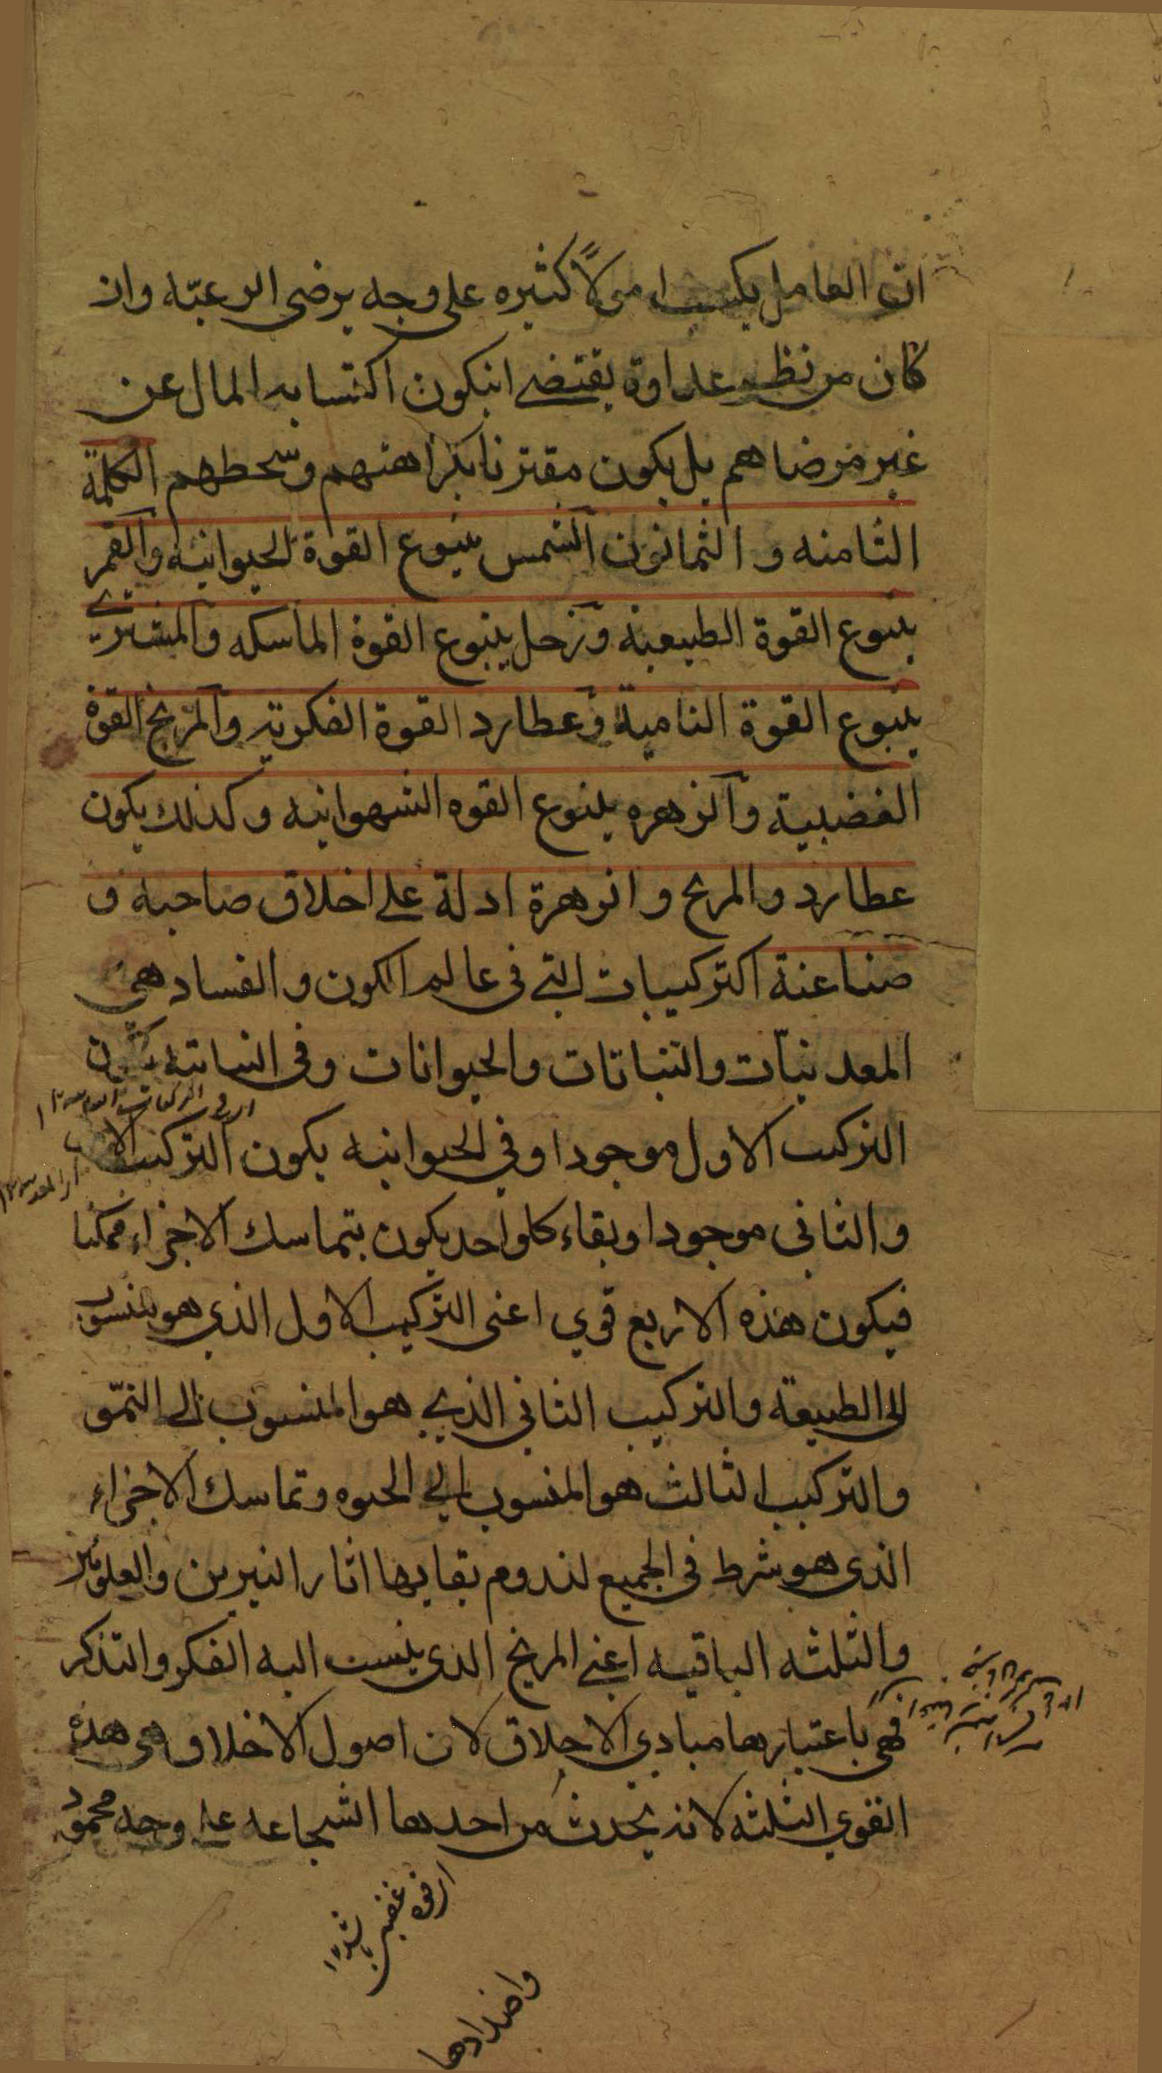 ان العامل يكسب اموالاً كثيره على وجه يرضى الرعيّه وان
كان من نظر عداوة يقتضے انيكون اكتسابه المال عن
غير مرضاهم بل يكون مقترنا بكراهتهم وسخطهم الكلمة
الثامنه و الثمانون الشمس ينبوع القوة الحيوانيه والقمر
ينبوع القوة الطبيعية وزحل ينبوع القوة الماسكه والمشتري
ينبوع القوة النامية وعطارد القوة الفكرية والمريخ القوة
الغضبية والزهره ينبوع القوه الشهوانيه وكذلك يكون
عطارد والمريخ والزهرة ادلة على اخلاق صاحبه و
صناعته التركيبات التے فى عالم الكون والفساد هى
المعدنيّات والنباتات والحيوانات وفى النباتيه يكون
التركيب الاول موجودا وفي الحيوانيه يكون التركيب الا
والثانى موجودا وبقاء كلواحد يكون بتماسك الاجزاء ممكنا
فيكون هذه الاربع قوي اعنى التركيب الاول الذي هو منسوب
الى الطبيعة والتركيب الثانى الذي هو المنسوب الى النموّ
والتركيب الثالث هو المنسوب الي الحيوه وتماسك الاجزاء
الذى هو شرط فى الجميع لتدوم بقايها اثار النيرين والعلويين
والثلثه الباقيه اعنے المريخ الذى ينسب اليه الفكر والتذكر
فهى باعتبارها مبادي الاخلاق لان اصول الاخلاق هى هذه
القوي الثلثه لانه يحدث من احدها الشجاعه على وجه محمود
از قوه غضبى
واضدادها